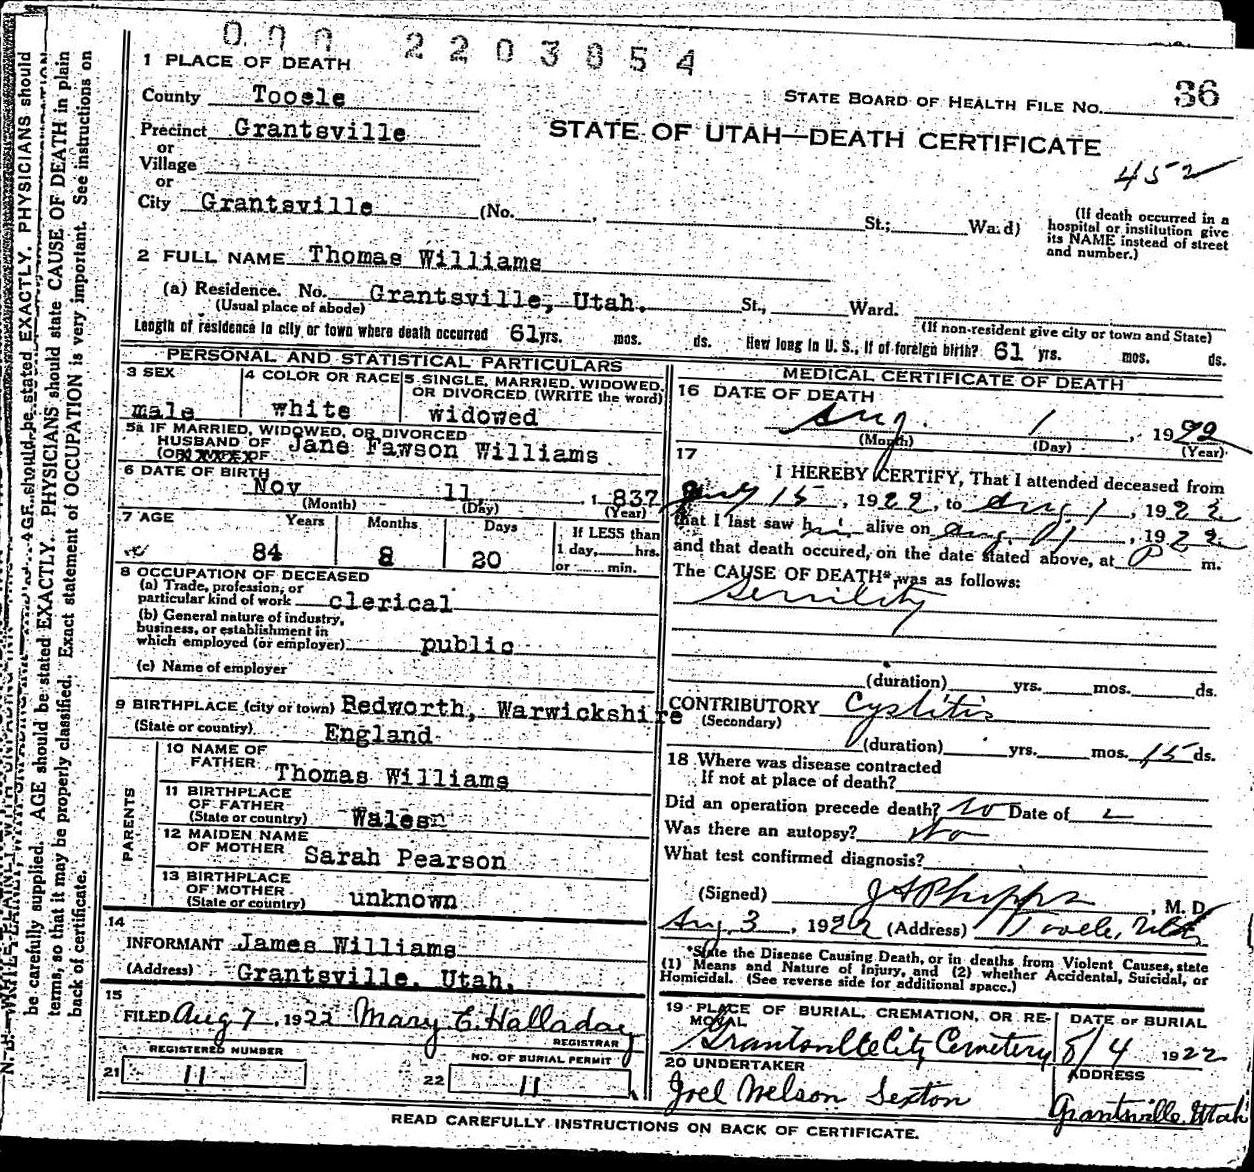 000 2203854
1 PLACE OF DEATH
County Tooele
Precinct Grantsville
or
Village
or
City Grantsville (No. , St.; Ward)
STATE BOARD OF HEALTH FILE NO. 36
STATE OF UTAH—DEATH CERTIFICATE
452
(If death occurred in a
hospital or institution give
its NAME instead of street
and number.)
2 FULL NAME Thomas Williams
(a) Residence. No. Grantsville, Utah. St., Ward.
(Usual place of abode)
(If non-resident give city or town and State)
Length of residence in city or town where death occurred 61 yrs. mos. ds. How long in U. S., if of foreign birth? 61 yrs. mos. ds.
PERSONAL AND STATISTICAL PARTICULARS
3 SEX
male
4 COLOR OR RACE
white
5 SINGLE, MARRIED, WIDOWED,
OR DIVORCED (WRITE the word)
widowed
5a IF MARRIED, WIDOWED, OR DIVORCED
HUSBAND OF Jane Fawson Williams
(OR OF
6 DATE OF BIRTH
Nov 11, 1 837
(Month) (Day) (Year)
7 AGE Years Months Days
84 8 20
If LESS than
1 day, hrs.
or min.
8 OCCUPATION OF DECEASED
(a) Trade, profession, or
particular kind of work clerical
(b) General nature of industry,
business, or establishment in
which employed (or employer) public
(c) Name of employer
9 BIRTHPLACE (city or town) Bedworth, Warwickshire
(State or country) England
PARENTS
10 NAME OF
FATHER Thomas Williams
11 BIRTHPLACE
OF FATHER
(State or country) Wales
12 MAIDEN NAME
OF MOTHER Sarah Pearson
13 BIRTHPLACE
OF MOTHER
(State or country) unknown
14
INFORMANT James Williams
(Address) Grantsville, Utah.
15
FILED Aug 7, 1922 Mary E. Halladay
REGISTRAR
REGISTERED NUMBER
21 11
NO. OF BURIAL PERMIT
22 11
MEDICAL CERTIFICATE OF DEATH
16 DATE OF DEATH
Aug. 1, 1922
(Month) (Day) (Year)
17
I HEREBY CERTIFY, That I attended deceased from
July 15, 1922, to Aug 1, 1922
that I last saw him alive on Aug. 1, 1922
and that death occured, on the date stated above, at P m.
The CAUSE OF DEATH* was as follows:
Senility
(duration) yrs. mos. ds.
CONTRIBUTORY Cystitis
(Secondary)
(duration) yrs. mos. 15 ds.
18 Where was disease contracted
If not at place of death?
Did an operation precede death? no Date of
Was there an autopsy? No
What test confirmed diagnosis?
(Signed) J A Phipps, M. D.
Aug. 3, 1922 (Address) Tooele, Utah
*State the Disease Causing Death, or in deaths from Violent Causes, state
(1) Means and Nature of Injury, and (2) whether Accidental, Suicidal, or
Homicidal. (See reverse side for additional space.)
19 PLACE OF BURIAL, CREMATION, OR RE-
MOVAL
Grantsville City Cemetery
DATE OF BURIAL
8/4 1922
20 UNDERTAKER
Joel Nelson Sexton
ADDRESS
Grantsville, Utah
READ CAREFULLY INSTRUCTIONS ON BACK OF CERTIFICATE.
be carefully supplied. AGE should be stated EXACTLY. PHYSICIANS should state CAUSE OF DEATH in plain
terms, so that it may be properly classified. Exact statement of OCCUPATION is very important. See instructions on
back of certificate.